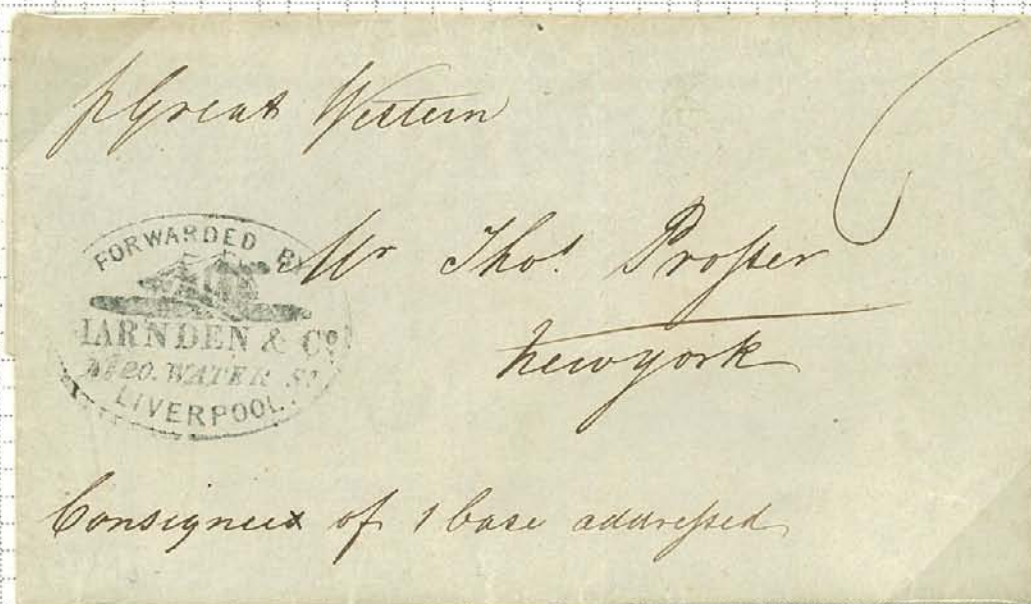 p Great Western
6
FORWARDED BY
HARNDEN & Co
No 20. WATER St
LIVERPOOL.
Mr Thos. Prosser
Newyork
Consignees of 1 Case addressed